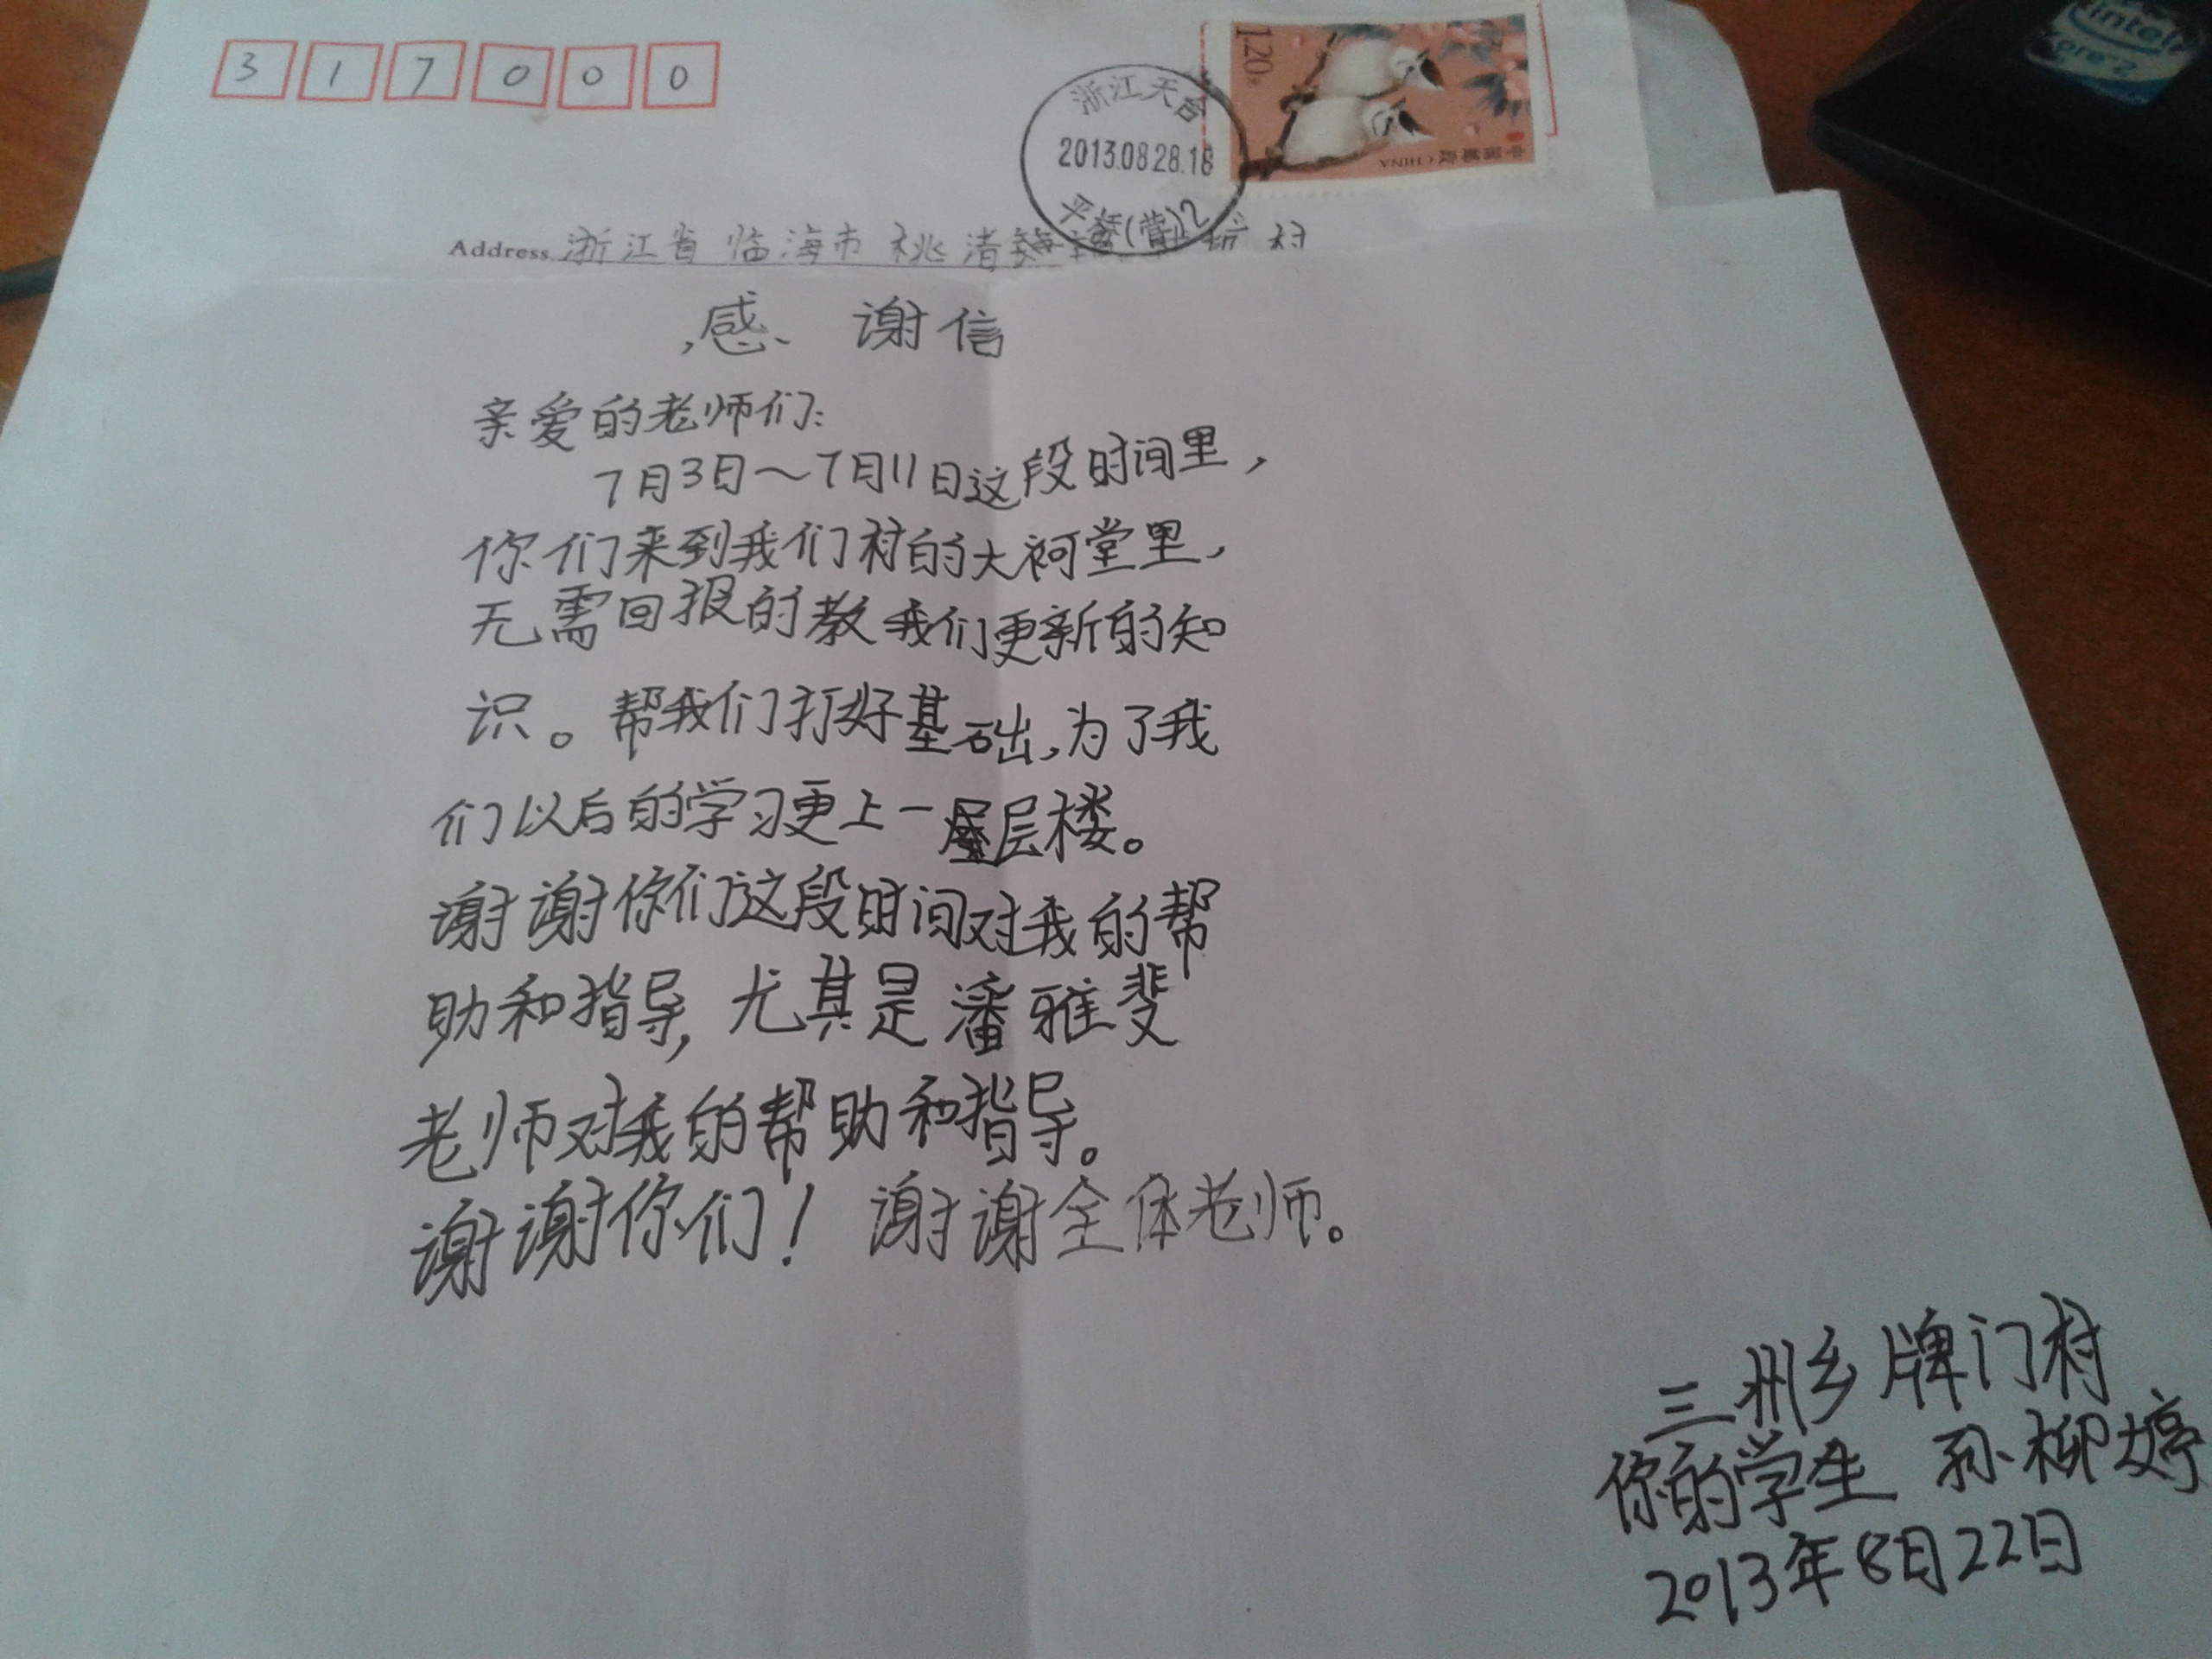 317000
1.20元
中国邮政 CHINA
浙江天台
2013.08.28.18
平桥(营)2
Address 浙江省临海市桃渚镇 村
感谢信
亲爱的老师们:
7月3日~7月11日这段时间里,
你们来到我们村的大祠堂里,
无需回报的教我们更新的知
识。帮我们打好基础,为了我
们以后的学习更上一层楼。
谢谢你们这段时间对我的帮
助和指导,尤其是潘雅斐
老师对我的帮助和指导。
谢谢你们!谢谢全体老师。
三州乡牌门村
你的学生 孙柳婷
2013年8月22日
intel
Core 2